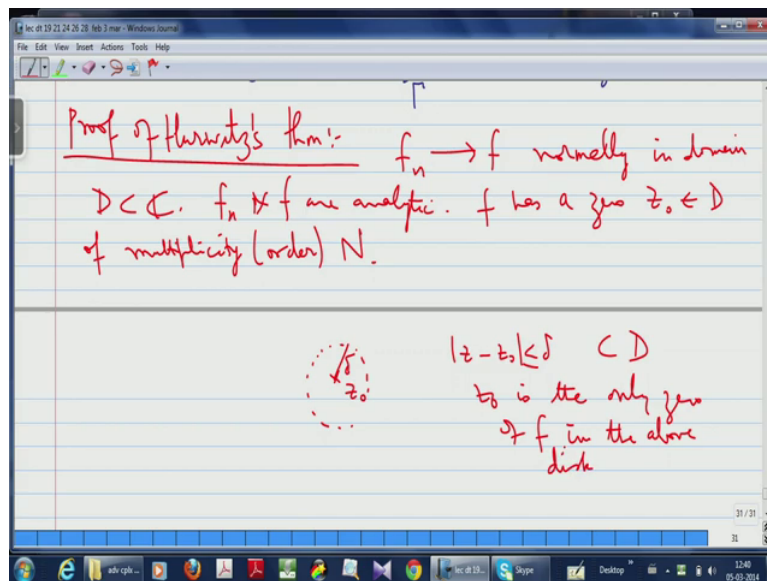 lec dt 19 21 24 26 28 feb 3 mar - Windows Journal
File Edit View Insert Actions Tools Help
Proof of Hurwitz's thm:- fn → f normally in domain
D ⊂ ℂ. fn & f are analytic. f has a zero z₀ ∈ D
of multiplicity (order) N.
δ
z₀
|z - z₀| < δ ⊂ D
z₀ is the only zero
of f in the above
disk
31 / 31
31
adv cplx ...
lec dt 19...
Skype
Desktop
12:40
05-03-2014